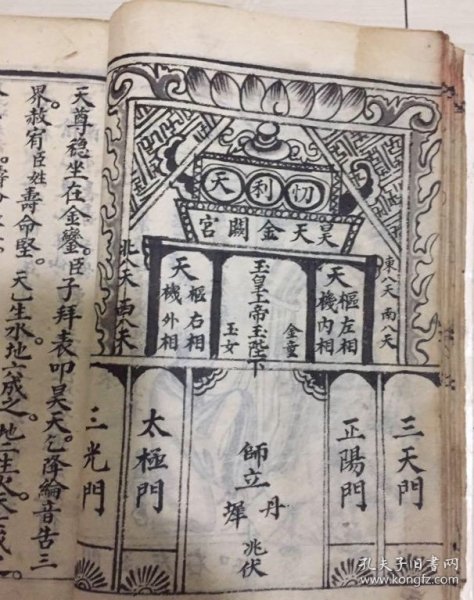 忉利天
昊天金闕宮
東八天 南八天
天樞左相
天機內相
金童
玉皇上帝玉陛下
玉女
天樞右相
天機外相
北八天 西八天
三天門
正陽門
丹墀
師立
兆伏
太極門
三光門
天尊稳坐在金鑾。臣子拜表叩昊天。乞降綸音告三
界。赦宥臣姓壽命堅。天乙生水地六成之。地二生火天七成之
孔夫子旧书网
www.kongfz.com